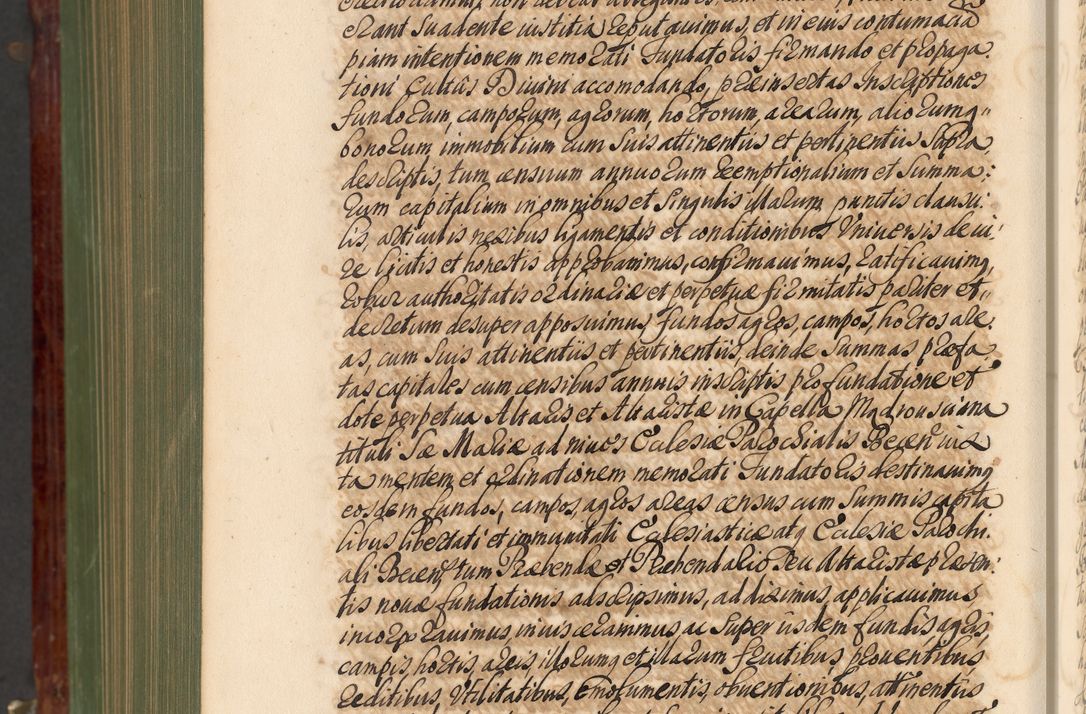 erant Suadente iustitia reputavimus, et in eius contumaciā
piam intentionem memorati Fundatoris firmando et propaga
tioni Cultûs Divini accomodando, præinsertas Inscriptiones
fundorum, camporum, agrorum, hortorum, arearum, aliorumq„
bonorum immobilium cum suis attinentiis et pertinentiis supra
descriptis, tum censuum annuorum reemptionalium et summa:
rum capitalium in omnibus et singulis illarum punctis clausu:
lis, articulis nexibus ligamentis et conditionibus Universis de iu:
re licitis et honestis approbavimus, confirmavimus, ratificavimq,
robur authoritatis ordinariæ et perpetuæ firmitatis pariter et„
decretum desuper apposuimus, fundos agros, campos, hortos are:
as, cum suis attinentiis et pertinentiis, deinde summas præfa
tas capitales cum censibus annuis inscriptis pro fundatione et
dote perpetua Altaris et Altaristæ in Capella Mądrousciana
tituli Sæ Mariæ ad nives Ecclesiæ Parochialis Beceń: iux
ta mentem et ordinationem memorati Fundatoris destinavimq
eosdem fundos, campos, agros areas census cum Summis capita
libus libertati et immunitati Ecclesiasticæ atq Ecclesiæ Parochi:
ali Beceń: tum Præbendæ et Præbendario seu Altaristæ præsen:
tis novæ fundationis adscripsimus, addiximus, applicavimus
incorporavimus, inviscerammus ac super iisdem fundis agris,
campis, hortis, areis, illorumq et illarum fructibus, proventibus
reditibus, Utilitatibus, emolumentis, obventionibus, attinentiis